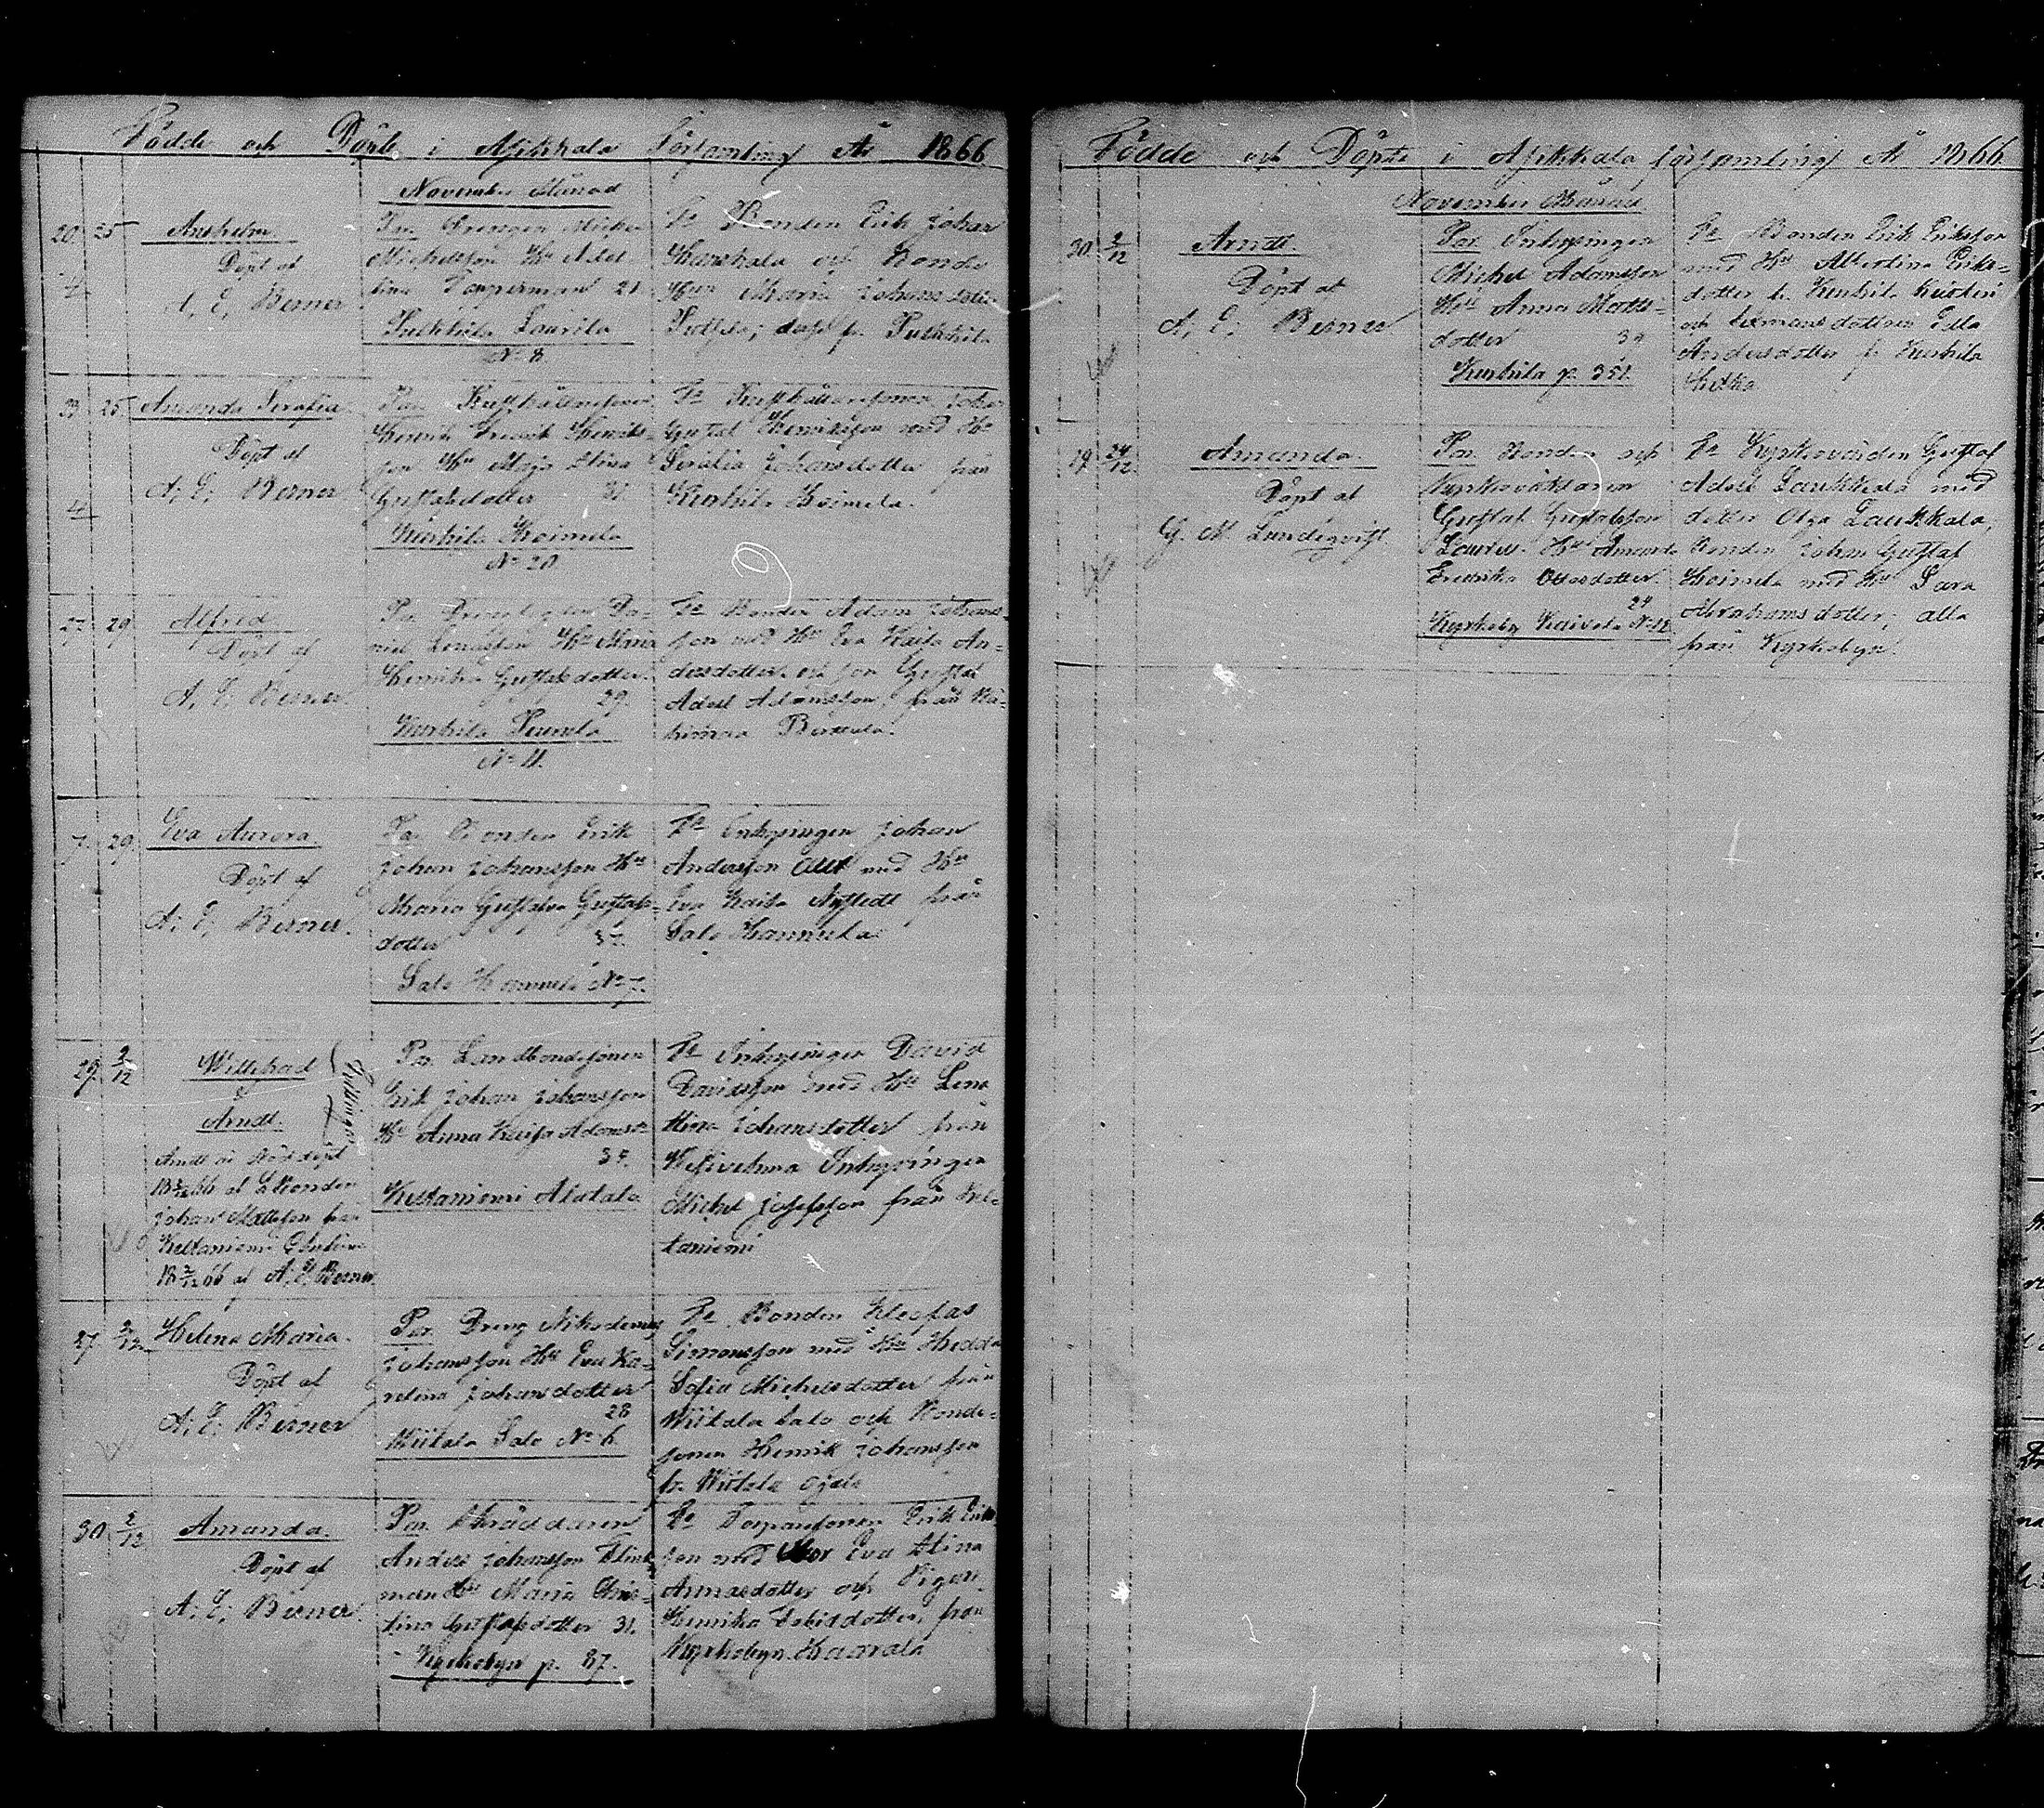 Födde och Döpte i Asikkala Församling År 1866
November Månad
20. 25
Anshelm
Döpt af
A; E; Berner
Par. Drengen Michel
Michelsson Hu Ade-
lina Tamperman 21
Pulkkila Laurila
No 8.
Fr Bonden Erik Johan
och Bonde
Hun Maria Johansdotter
fr. Pulkkila
23 25
Amanda Serafia
Döpt af
A; E; Berner
Par.
Henrik Fredrik Henriks-
son Hu Maja Stina
Gustafsdotter 31.
Kurhila Hoimela
No 20
Fr Johan
Gustaf Henriksson med Hu
Serafia Johansdotter från
Kurhila Hoimela.
27. 29.
Alfred
Döpt af
A; E; Berner.
Par. Da-
niel Hu Maria
Henrika Gustafsdotter.
29.
Kurhila
No 11.
Fr Bonden Adam Johans-
son med Hu Eva Kaisa An-
dersdotter och son Gustaf
Adolf Adamsson, från
7. 29.
Eva Aurora.
Döpt af
A; E; Berner.
Par. Bonden Erik
Johan Johansson Hu
Maria Gustafva Gustafs-
dotter 37.
Salo Hannula No 7.
Fr Inhysingen Johan
Andersson med Hu
Eva Kaisa Nystedt från
Salo Hannula
29. 2/12
Willehad
&
Arndt.
Tvillingar
Arndt är Nöddöpt
af Bonden
Johan Mattsson från
Keltaniemi
18 2/12 66 af A; E; Berner.
Par. Landbondesonen
Erik Johan Johansson
Hu Anna Kaisa Adamsdr
34.
Keltaniemi Alatalo
Fr Inhysingen David
Davidsson med Hu Lena
Stina Johansdotter från
Wesivehma Inhysingen
Michel Josefsson från Kel-
taniemi
27. 2/12.
Helena Maria.
Döpt af
A; E; Berner
Par. Dreng Nikodemus
Johansson Hu Eva Ka-
rolina Johansdotter
28
Wiitala Salo No 6.
Fr Bonden Kleofas
Simonsson med Hu Hedda
Sofia Michelsdotter från
Wiitala Salo och Bonde-
sonen Henrik Johansson
fr. Wiitala Ojala
30. 2/12
Amanda.
Döpt af
A; E; Berner.
Par. Skräddaren
Anders Johansson Flink-
man Hu Maria Chris-
tina Gustafsdotter 31.
Kyrkobyn p. 87.
Fr Torparesonen Erik Erik-
son med Mor Eva Stina
och Pigan
Henrika Davidsdotter, från
Kyrkobyn Haarala
Födde och Döpte i Asikkala församling År 1866
November Månad
30. 2/12
Arndt.
Döpt af
A; E; Berner
Par. Inhysingen
Michel Adamsson
Hu Anna Matts-
dotter 39
Kurhila p. 351.
Fr Bonden Erik Eriksson
med Hu Albertina Eriks-
dotter fr. Kurhila
och Edla
Andersdotter fr Kurhila
19. 24/12.
Amanda.
Döpt af
G. M. Lundqvist
Par. Bonden och
Kyrkoväktaren
Gustaf Gustafsson
Hu Amanda
Fredrika Ottosdotter.
24
Kyrkoby Kaivola No 12
Fr Kyrkovärden Gustaf
Adolf Laukkala med
dotter Olga Laukkala,
Bonden Johan Gustaf
Hoimela med Hu Sara
Abrahamsdotter, alla
från Kyrkobyn.